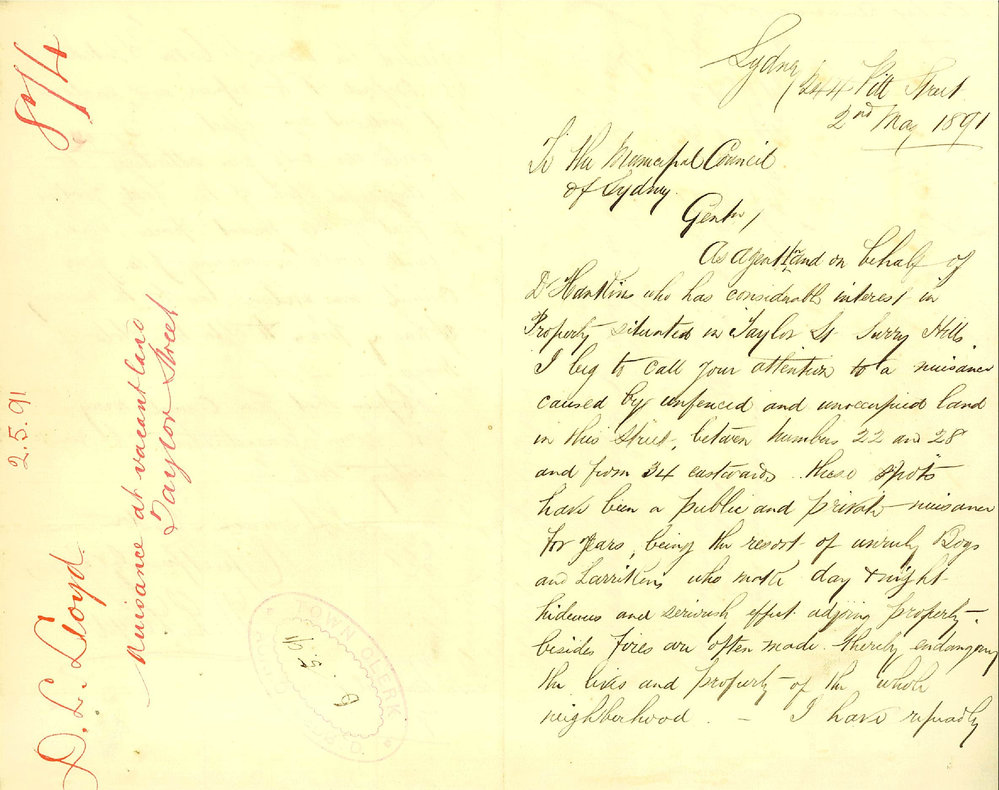 87/4
2.5.91
D. L. Lloyd
Nuisance at vacant land
Taylor Street
TOWN CLERK
6. 5. 91
Sydney
244 Pitt Street
2nd May 1891
To the Municipal Council
of Sydney.
Gentn /
As agent and on behalf of
Dr Hankins who has considerable interest in
Property situated in Taylor St Surry Hills.
I beg to call your attention to a nuisance
caused by unfenced and unoccupied land
in this Street, between numbers 22 and 28
and from 34 eastwards. these spots
have been a public and private nuisance
for years, being the resort of unruly Boys
and Larrikins who make day & night
hideous and seriously effect adjoing property.
besides Fires are often made thereby endangering
the lives and property of the whole
neighberhood. — I have repeadly